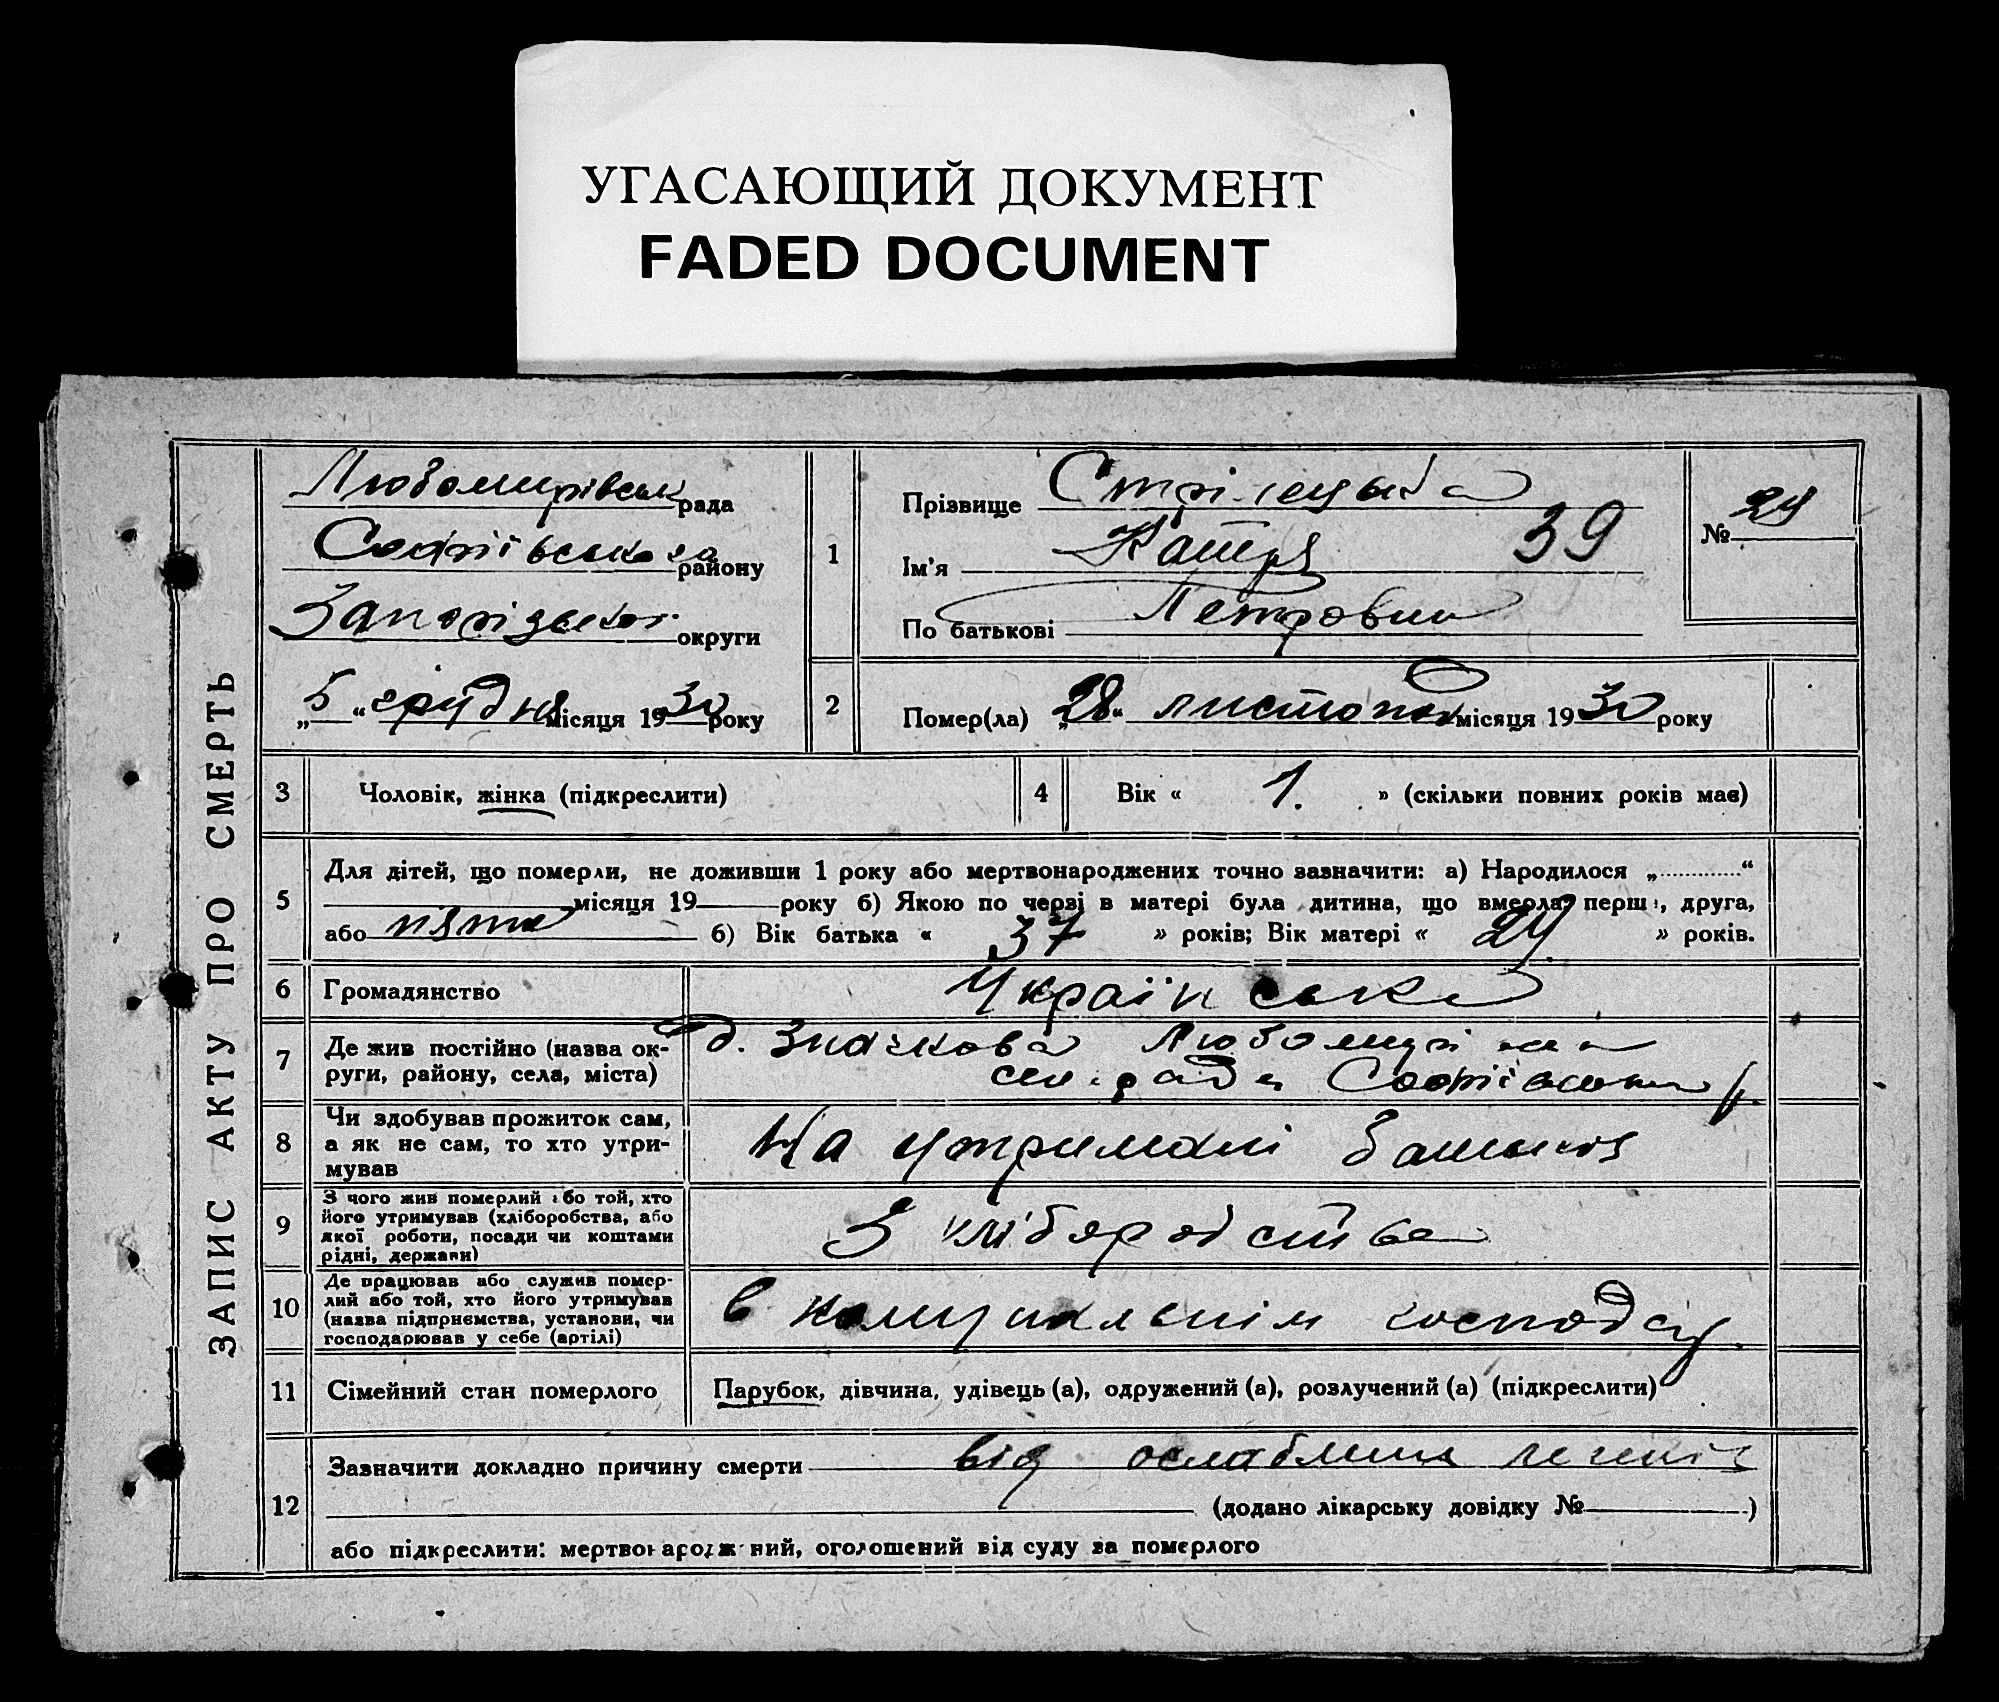 УГАСАЮЩИЙ ДОКУМЕНТ
FADED DOCUMENT
ЗАПИС АКТУ ПРО СМЕРТЬ
Любомирівськ рада
Софіївського району
Запорізької округи
„5“ грудня місяця 1930 року
1
Прізвище Стрілецька
Ім'я Катря 39
По батькові Петровна
№ 24
2
Помер(ла) „28“ листопад місяця 1930 року
3 Чоловік, жінка (підкреслити)
4 Вік « 1. » (скільки повних років має)
5 Для дітей, що померли, не доживши 1 року або мертвонароджених точно зазначити: а) Народилося „ “
місяця 19 року б) Якою по черзі в матері була дитина, що вмерла: перша, друга,
або пята б) Вік батька « 37 » років; Вік матері « 24 » років.
6 Громадянство Українське
7 Де жив постійно (назва ок-
руги, району, села, міста)
д. Значкова
сел. ради Софіївського р.
8 Чи здобував прожиток сам,
а як не сам, то хто утри-
мував
На утримані батьків
9 З чого жив померлий або той, хто
його утримував (хліборобства, або
якої роботи, посади чи коштами
рідні, держави)
З хліборобства
10 Де працював або служив помер-
лий або той, хто його утримував
(назва підприємства, установи, чи
господарював у себе (артілі)
в господсу
11 Сімейний стан померлого Парубок, дівчина, удівець (а), одружений (а), розлучений (а) (підкреслити)
12 Зазначити докладно причину смерти від ослаблення легенів
(додано лікарську довідку № )
або підкреслити: мертвонароджений, оголошений від суду за померлого